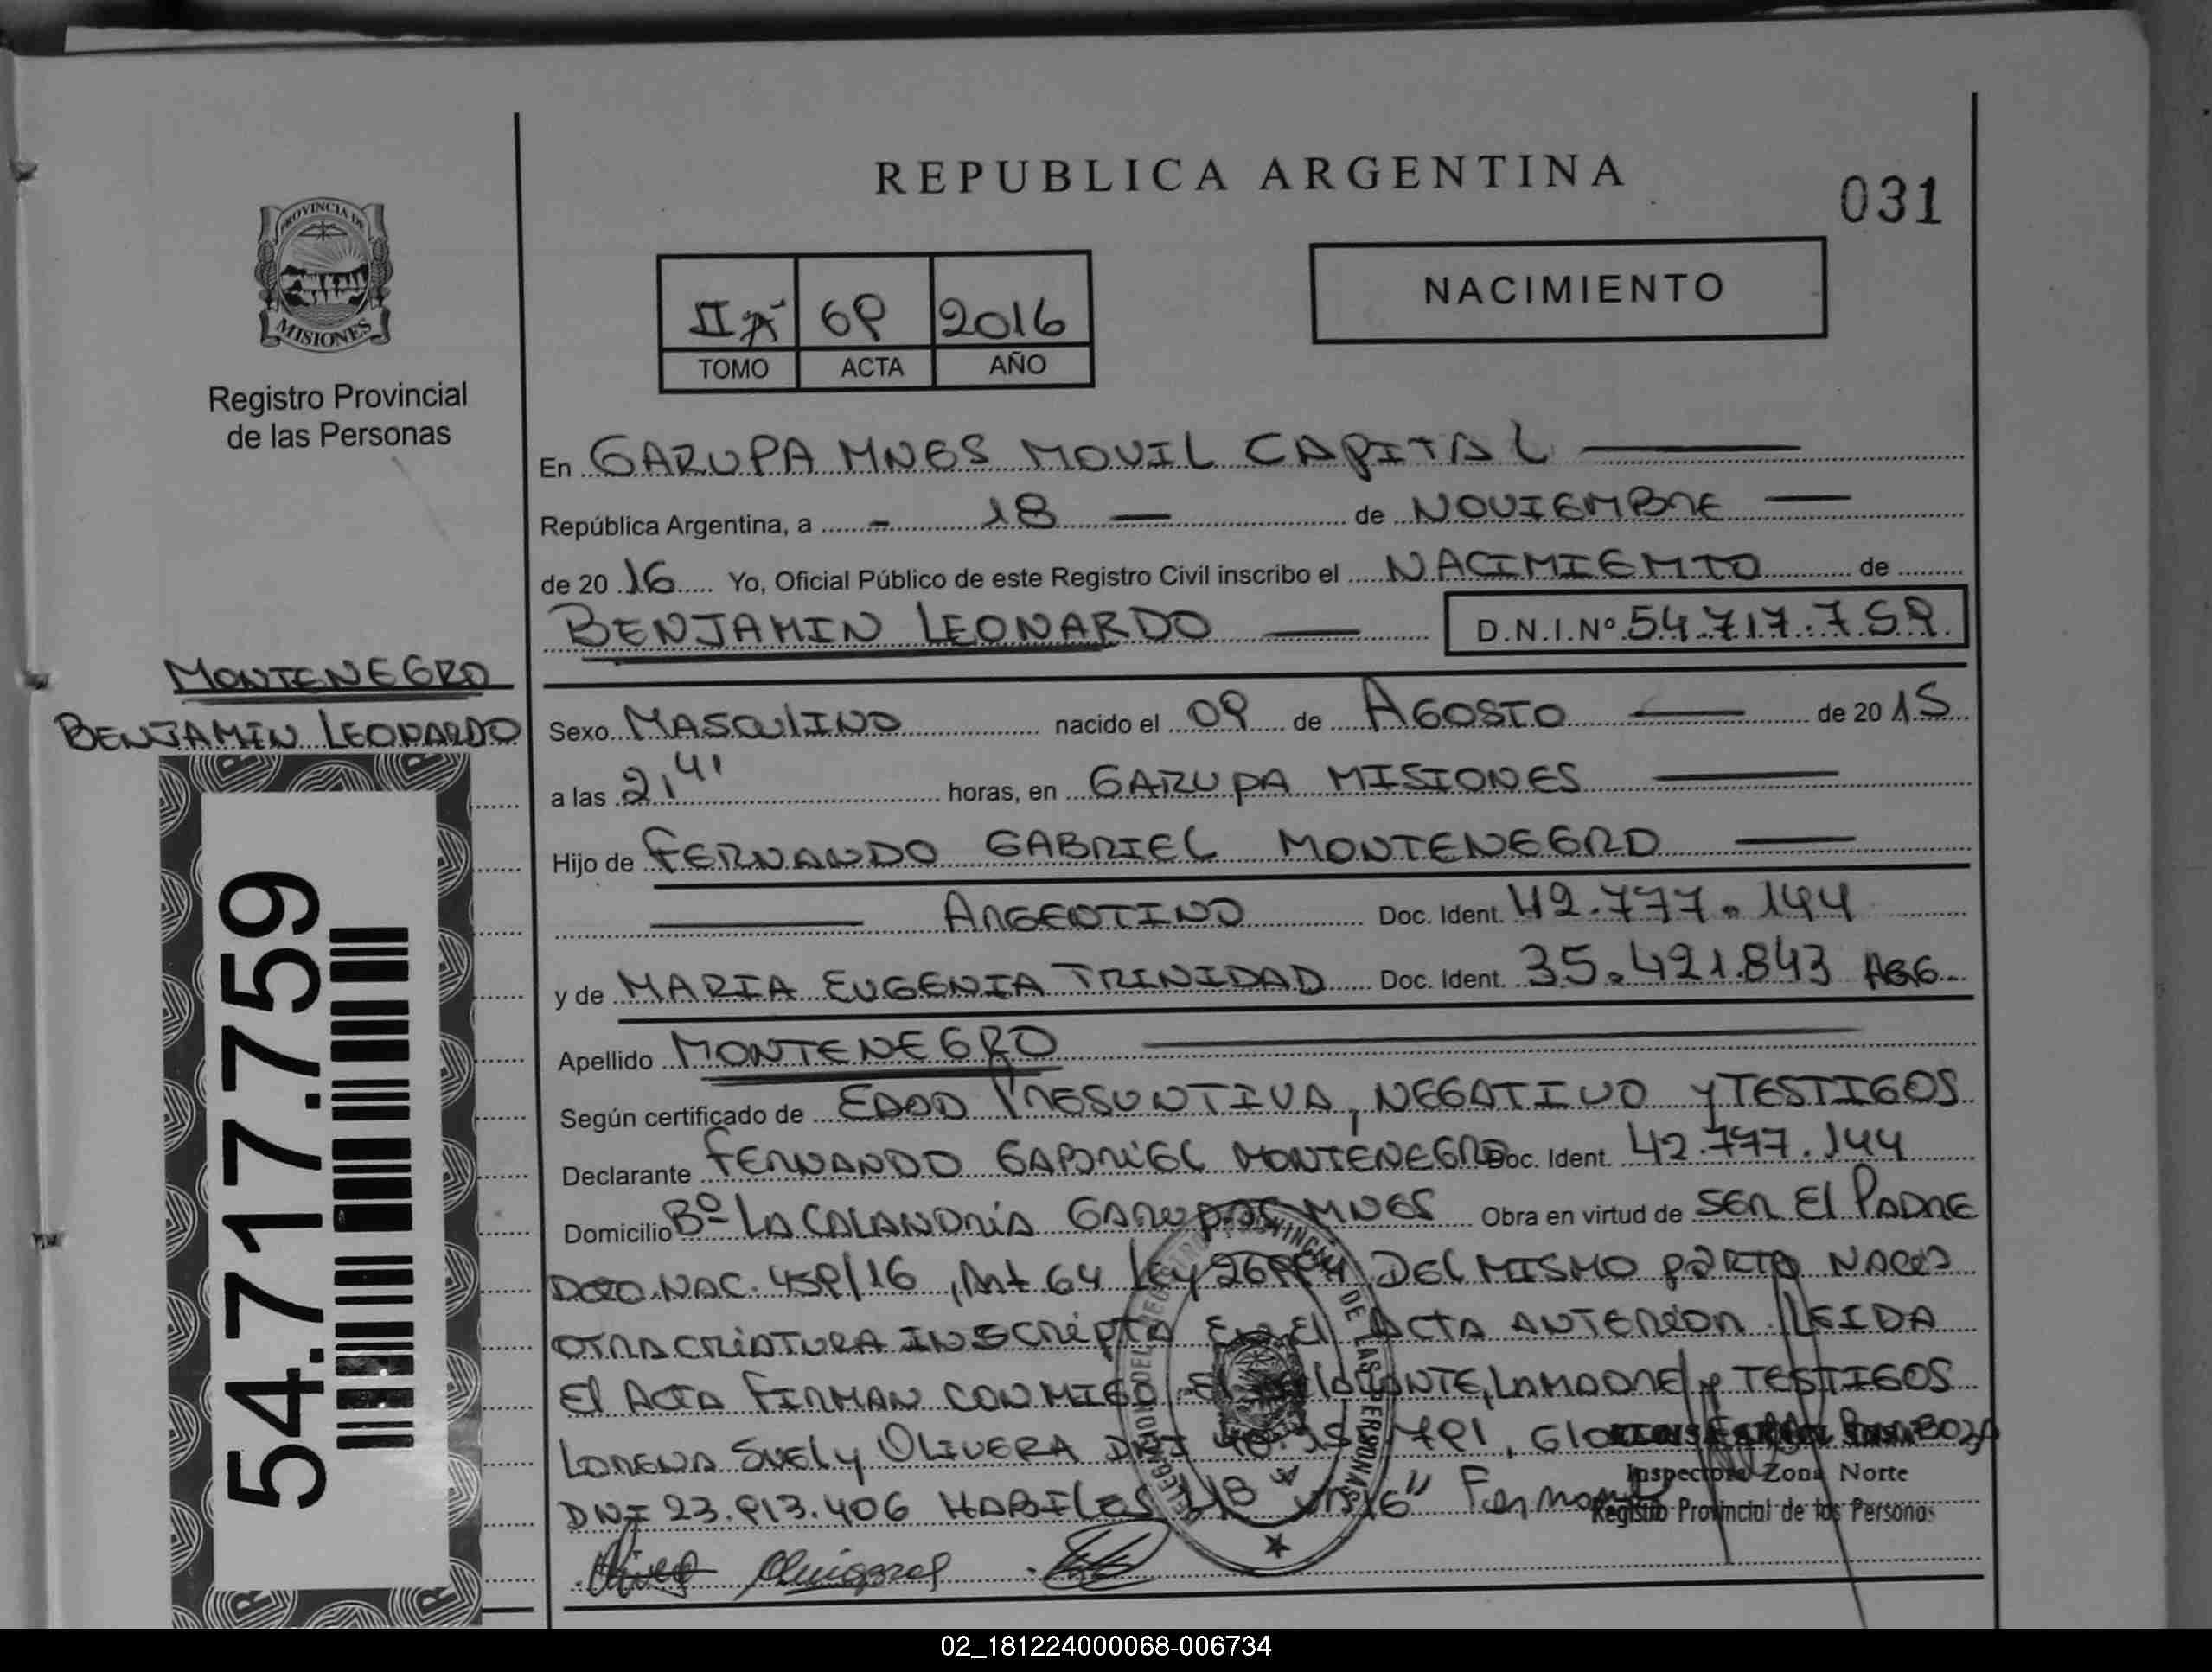 REPUBLICA ARGENTINA
031
PROVINCIA DE
MISIONES
Registro Provincial
de las Personas
IIA 69 2016
TOMO ACTA AÑO
NACIMIENTO
En GARUPA MNES MOVIL CAPITAL
República Argentina, a - 18 — de NOVIEMBRE
de 2016 Yo, Oficial Público de este Registro Civil inscribo el NACIMIENTO de
BENJAMIN LEONARDO D.N.I.Nº 54.717.759
MONTENEGRO
BENJAMIN LEONARDO
54.717.759
Sexo MASCULINO nacido el 09 de AGOSTO de 2015
a las 21,41 horas, en GARUPA MISIONES
Hijo de FERNANDO GABRIEL MONTENEGRO
ARGENTINO Doc. Ident. 42.777.144
y de MARIA EUGENIA TRINIDAD Doc. Ident. 35.421.843 ARG
Apellido MONTENEGRO
Según certificado de EDAD PRESUNTIVA, NEGATIVO Y TESTIGOS
Declarante FERNANDO GABRIEL MONTENEGRO Doc. Ident. 42.777.144
Domicilio Bº LA CALANDRIA GARUPA MNES Obra en virtud de SER EL PADRE
NAC. 459/16, Art. 64 Ley 26994, DEL MISMO PARTO NACIO
OTRA CRIATURA INSCRIPTA EN EL ACTA ANTERIOR LEIDA
EL ACTA FIRMAN CONMIGO EL DECLARANTE, LA MADRE y TESTIGOS
LORENA SUELY OLIVERA DNI
DNI 23.913.406 HABILES
Inspectora Zona Norte
Registro Provincial de las Personas
02_181224000068-006734